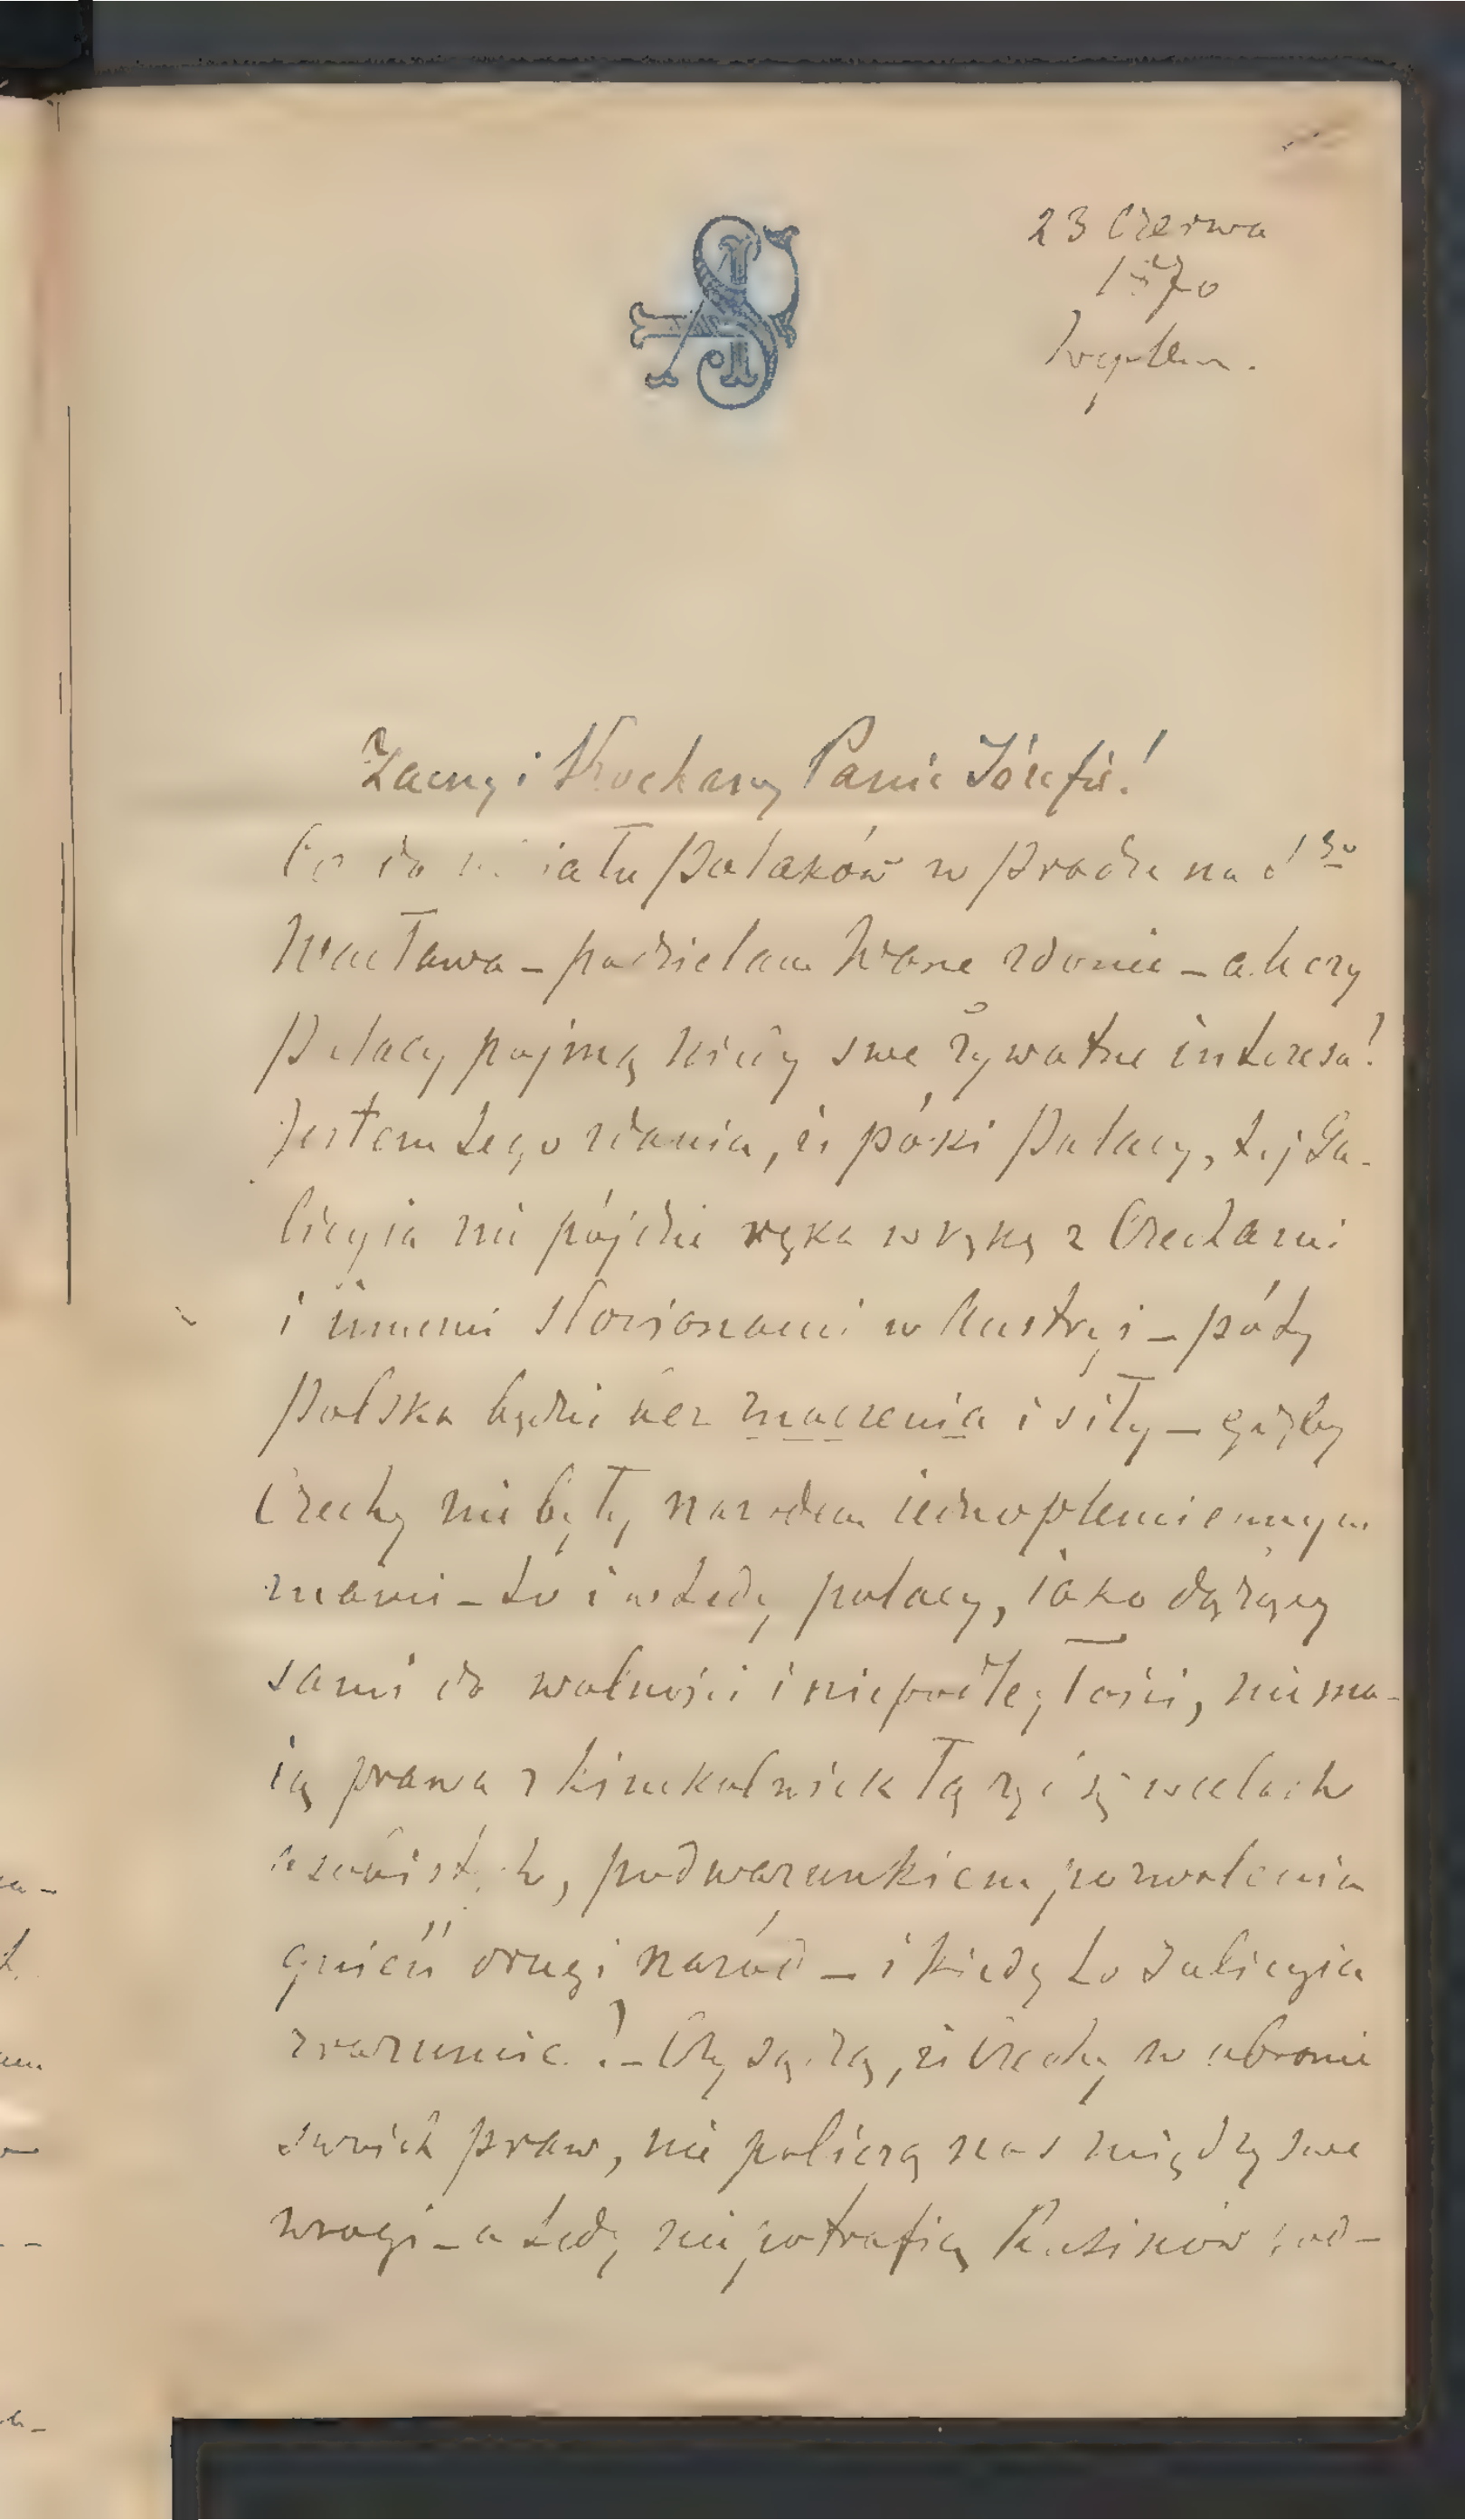 23 Czerwa
1870
Zacny i Kochany Panie Józefie!
Co do udziału Polaków w Pradze na Sgo
Wacława – podzielam Wasze zdanie – ale czy
Polacy pojmą kiedy swe żywotne interesa?
Jestem tego zdania, iż póki Polacy, t.j Ga-
licyia nie pójdzie ręka w rękę z Czechami
i innemi Słowianami w Austryi – póty
Polska będzie bez znaczenia i siły – gdyby
Czechy nie były narodem iednoplemiennym
znami – to i wtedy polacy, iako dążący
sami do wolności i niepodległości, nie ma-
ią prawa z kimkolwiek łączyć się w celach
osobistych, pod warunkiem pozwolenia
gnieść drugi naród – i kiedy to Galicyia
zrozumie? – Czy sądzą, iż Czechy w obronie
swoich praw, nie policzą nas między swe
wrogi – a tedy nie potrafią Rusinów